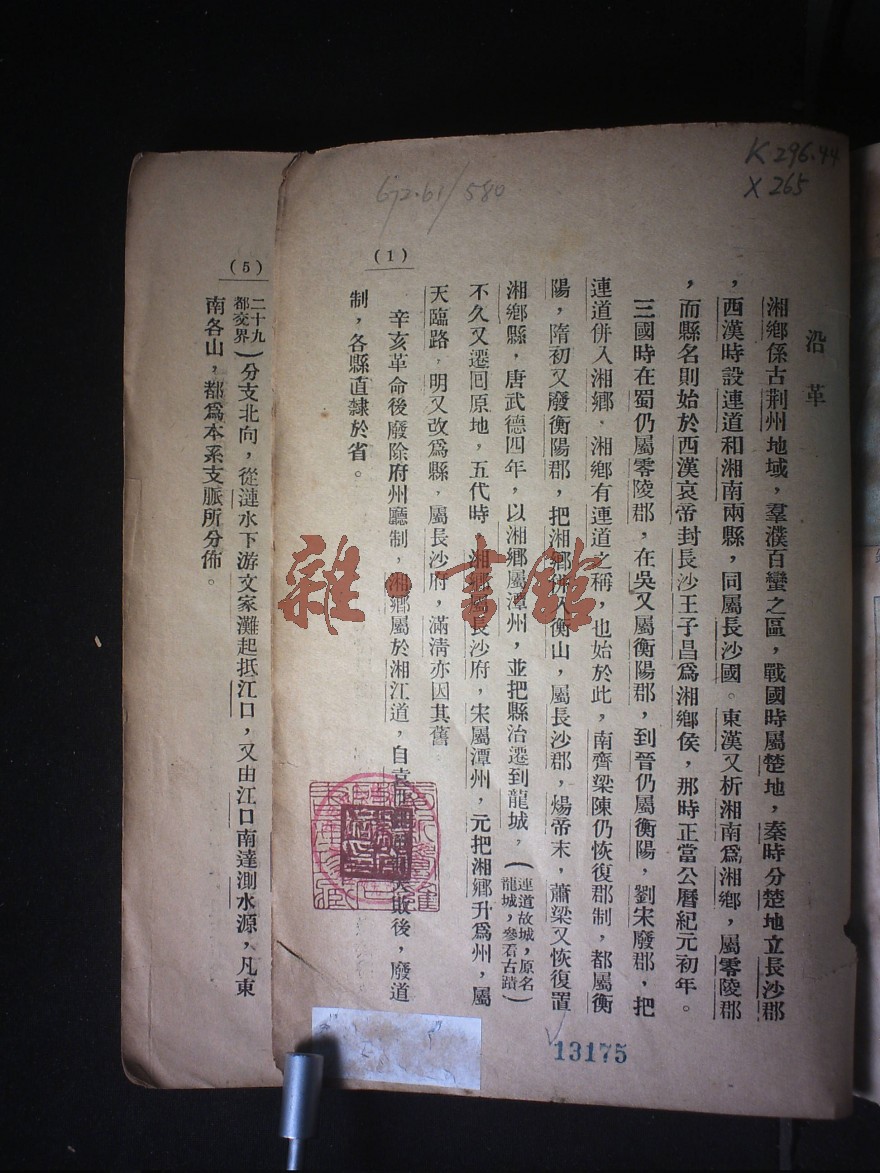 K 296.44
X 265
672.61/580
沿革
湘鄉係古荆州地域，羣濮百蠻之區，戰國時屬楚地，秦時分楚地立長沙郡
，西漢時設連道和湘南兩縣，同屬長沙國。東漢又析湘南爲湘鄉，屬零陵郡
，而縣名則始於西漢哀帝封長沙王子昌爲湘鄉侯，那時正當公曆紀元初年。
三國時在蜀仍屬零陵郡，在吳又屬衡陽郡，到晉仍屬衡陽，劉宋廢郡，把
連道併入湘鄉，湘鄉有連道之稱，也始於此，南齊梁陳仍恢復郡制，都屬衡
陽，隋初又廢衡陽郡，把湘鄉併入衡山，屬長沙郡，煬帝末，蕭梁又恢復置
湘鄉縣，唐武德四年，以湘鄉屬潭州，並把縣治遷到龍城，（連道故城，原名龍城，參看古蹟）
不久又遷回原地，五代時湘鄉屬長沙府，宋屬潭州，元把湘鄉升爲州，屬
天臨路，明又改爲縣，屬長沙府，滿清亦因其舊
辛亥革命後廢除府州廳制，湘鄉屬於湘江道，自袁敗後，廢道
制，各縣直隸於省。
(1)
13175
雜·書館
(5)
二十九都交界）分支北向，從漣水下游文家灘起抵江口，又由江口南達測水源，凡東
南各山，都爲本系支脈所分佈。